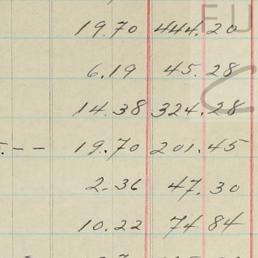 19.70 444.20
6.19 45.28
14.38 324.28
-- 19.70 201.45
2.36 47.30
10.22 74 84